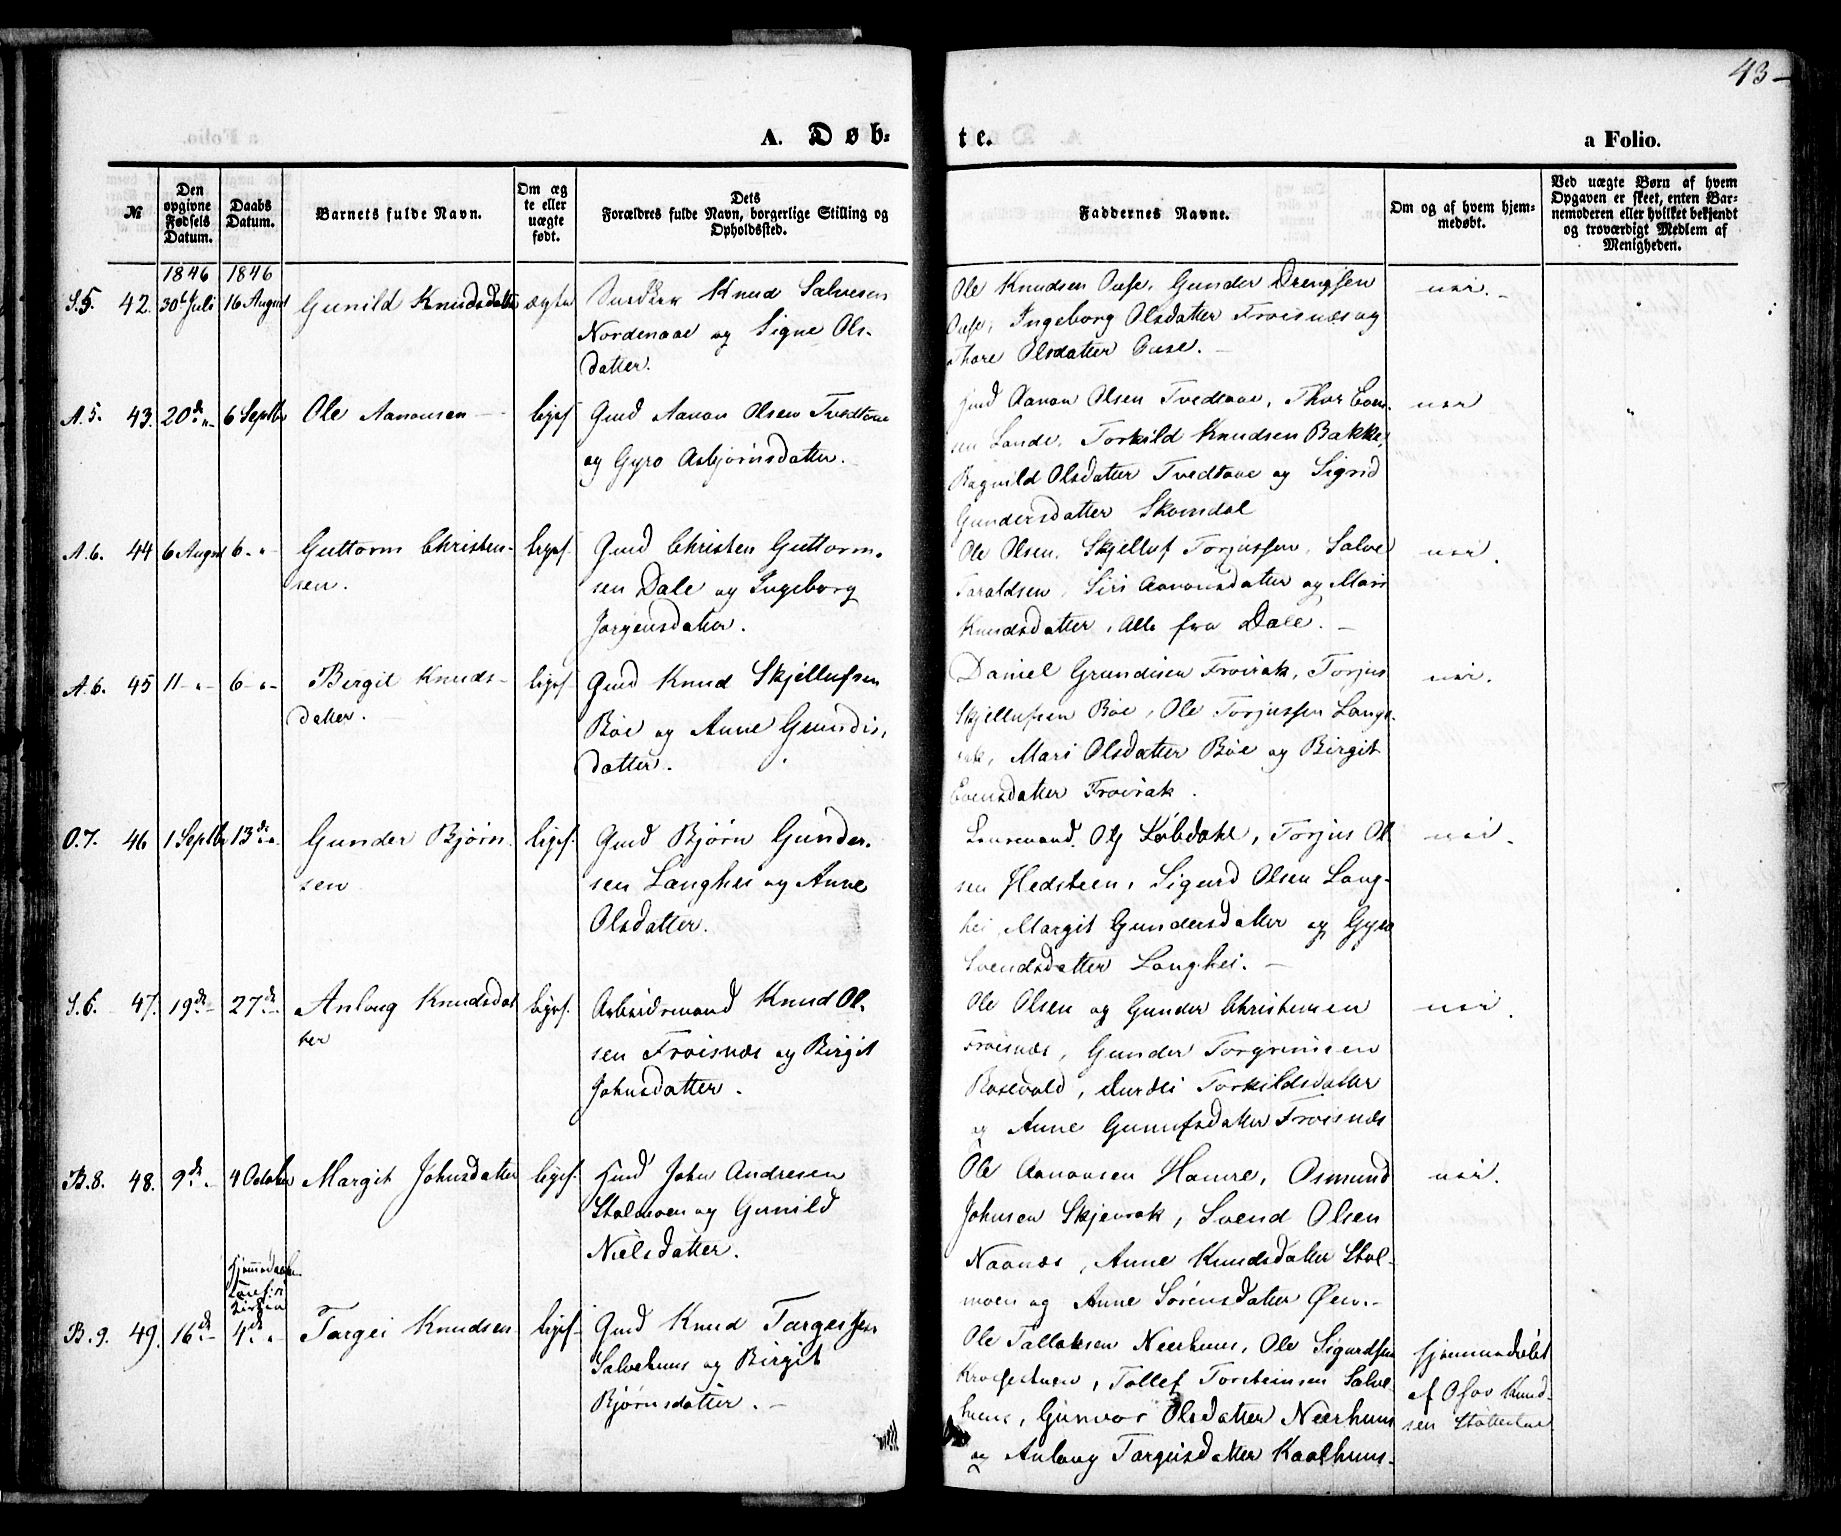 43-
A. Døb-
te.
a Folio.
№
Den opgivne Fødsels Datum.
Daabs Datum.
Barnets fulde Navn.
Om ægte eller uægte født.
Dets Forældres fulde Navn, borgerlige Stilling og Opholdssted.
Faddernes Navne.
Om og af hvem hjemmedøbt.
Ved uægte Børn af hvem Opgaven er skeet, enten Barnemoderen eller hvilket bekjendt og troværdigt Medlem af Menigheden.
1846 1846
S.5. 42. 30t Juli 16 August Gunild Knudsdatter ægte
Knud Salvesen
Nordenaae og Signe Ols-
datter.
Ole Knudsen Ouse, Gunder Drengsen
Ouse, Ingeborg Olsdatter Froisnæs og
Thore Olsdatter Ouse.
nei.
A.5. 43. 20de " 6 Septbr Ole Aanonsen ligesf
Gmd Aanon Olsen Tvedtaae
og Gyro Asbjørnsdatter.
Gmd Aanon Olsen Tvedtaae, Thor Even-
sen Lande, Torkild Knudsen Bakke,
Ragnild Olsdatter Tvedtaae og Sigrid
Gundersdatter Skomdal
nei
A.6. 44 6 August 6 - " Guttorm Christen-
sen.
ligesf
Gmd Christen Guttorm-
sen Dale og Ingeborg
Jørgensdatter.
Ole Olsen, Skjelluf Torjussen, Salve
Taraldsen, Siri Aanonsdatter og Mari
Knudsdatter, Alle fra Dale.
nei.
A.6. 45 11 - " - 6 - " - Birgit Knuds-
datter.
ligesf
Gmd Knud Skjellufsen
Bøe og Anne Gundis-
datter.
Daniel Grundesen Froirak, Torjus
Skjellufsen Bøe, Ole Torjussen Langs-
Mari Olsdatter Bøe og Birgit
Evensdatter Froirak.
nei.
O.7. 46 1 Septbr 13de " Gunder Bjørn-
sen
ligesf.
Gmd Bjørn Gunder-
sen Langhei og Anne
Olsdatter.
Lensmand O Torjus Ol-
sen Hedsteen, Sigurd Olsen Lang-
hei, Margit Gundersdatter og Gyro
Svendsdatter Langhei.
nei.
S.6. 47. 19de " 27de " Anlaug Knudsdat
ter
ligesf.
Arbeidsmand Knud Ol-
sen Froisnæs og Birgit
Johnsdatter.
Ole Olsen og Gunder Christensen
Froisnæs, Gunder Torgrimsen
Rosevold, Torkildsdatter
og Anne Gunufsdatter Froisnæs
nei.
B.8. 48. 9de " 4 October Margit Johnsdatter ligesf.
Hmd John Andresen
Stolmoen og Gunild
Nielsdatter.
Ole Aanonsen Homre, Osmund
Johnsen Skjevrak, Svend Olsen
Naanæs, Anne Knudsdatter Stol-
moen og Anne Sørensdatter Øen.
nei.
Hjemmedaaben
Conf. i
Kirken
B.9. 49. 16de 4de " Targei Knudsen ligesf
Gmd Knud Targeisen
Salvehuus og Birgit
Bjørnsdatter.
Ole Tallaksen Neerhuus, Ole Sigurdsen
Tollef Torsteinsen Salve-
huus, Gunvor Olsdatter Neerhuus
og Anlaug Targeisdatter Kaalhuus.
hjemmedøbt
af Osov Knud-
sen